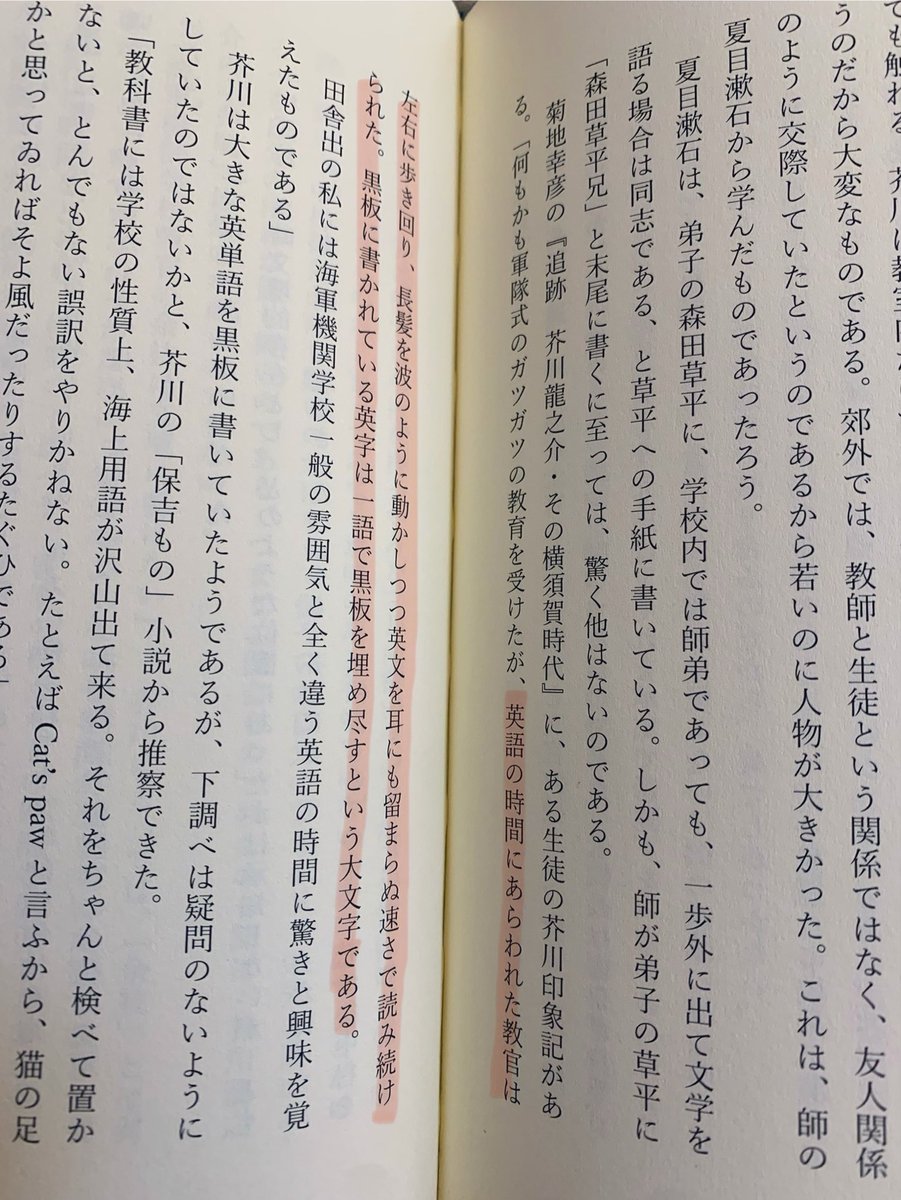 でも触れる。芥川は教室内
うのだから大変なものである。郊外では、教師と生徒という関係ではなく、友人関係
のように交際していたというのであるから若いのに人物が大きかった。これは、師の
夏目漱石から学んだものであったろう。
夏目漱石は、弟子の森田草平に、学校内では師弟であっても、一歩外に出て文学を
語る場合は同志である、と草平への手紙に書いている。しかも、師が弟子の草平に
「森田草平兄」と末尾に書くに至っては、驚く他はないのである。
菊地幸彦の『追跡 芥川龍之介・その横須賀時代』に、ある生徒の芥川印象記があ
る。「何もかも軍隊式のガツガツの教育を受けたが、英語の時間にあらわれた教官は
左右に歩き回り、長髪を波のように動かしつつ英文を耳にも留まらぬ速さで読み続け
られた。黒板に書かれている英字は一語で黒板を埋め尽すという大文字である。
田舎出の私には海軍機関学校一般の雰囲気と全く違う英語の時間に驚きと興味を覚
えたものである」
芥川は大きな英単語を黒板に書いていたようであるが、下調べは疑問のないように
していたのではないかと、芥川の「保吉もの」小説から推察できた。
「教科書には学校の性質上、海上用語が沢山出て来る。それをちゃんと検べて置か
ないと、とんでもない誤訳をやりかねない。たとえば Cat's paw と言ふから、猫の足
かと思ってゐればそよ風だったりするたぐひである」